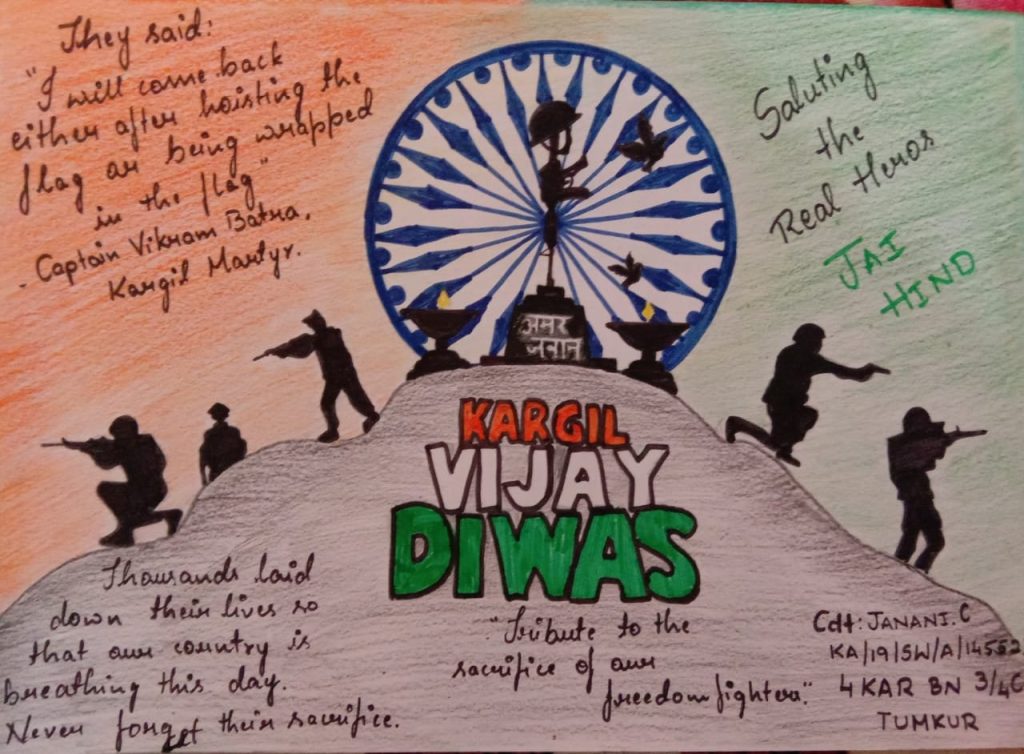 They said:
"I will come back
either after hoisting the
flag or being wrapped
in the flag"
- Captain Vikram Batra,
Kargil Martyr.
Saluting
the
Real Heros
JAI
HIND
अमर
जवान
KARGIL
VIJAY
DIWAS
Thousands laid
down their lives so
that our country is
breathing this day.
Never forget their sacrifice.
"Tribute to the
sacrifice of our
freedom fighters."
Cdt: JANANI.C
KA/19/SW/A/14552
4 KAR BN 3/4C
TUMKUR